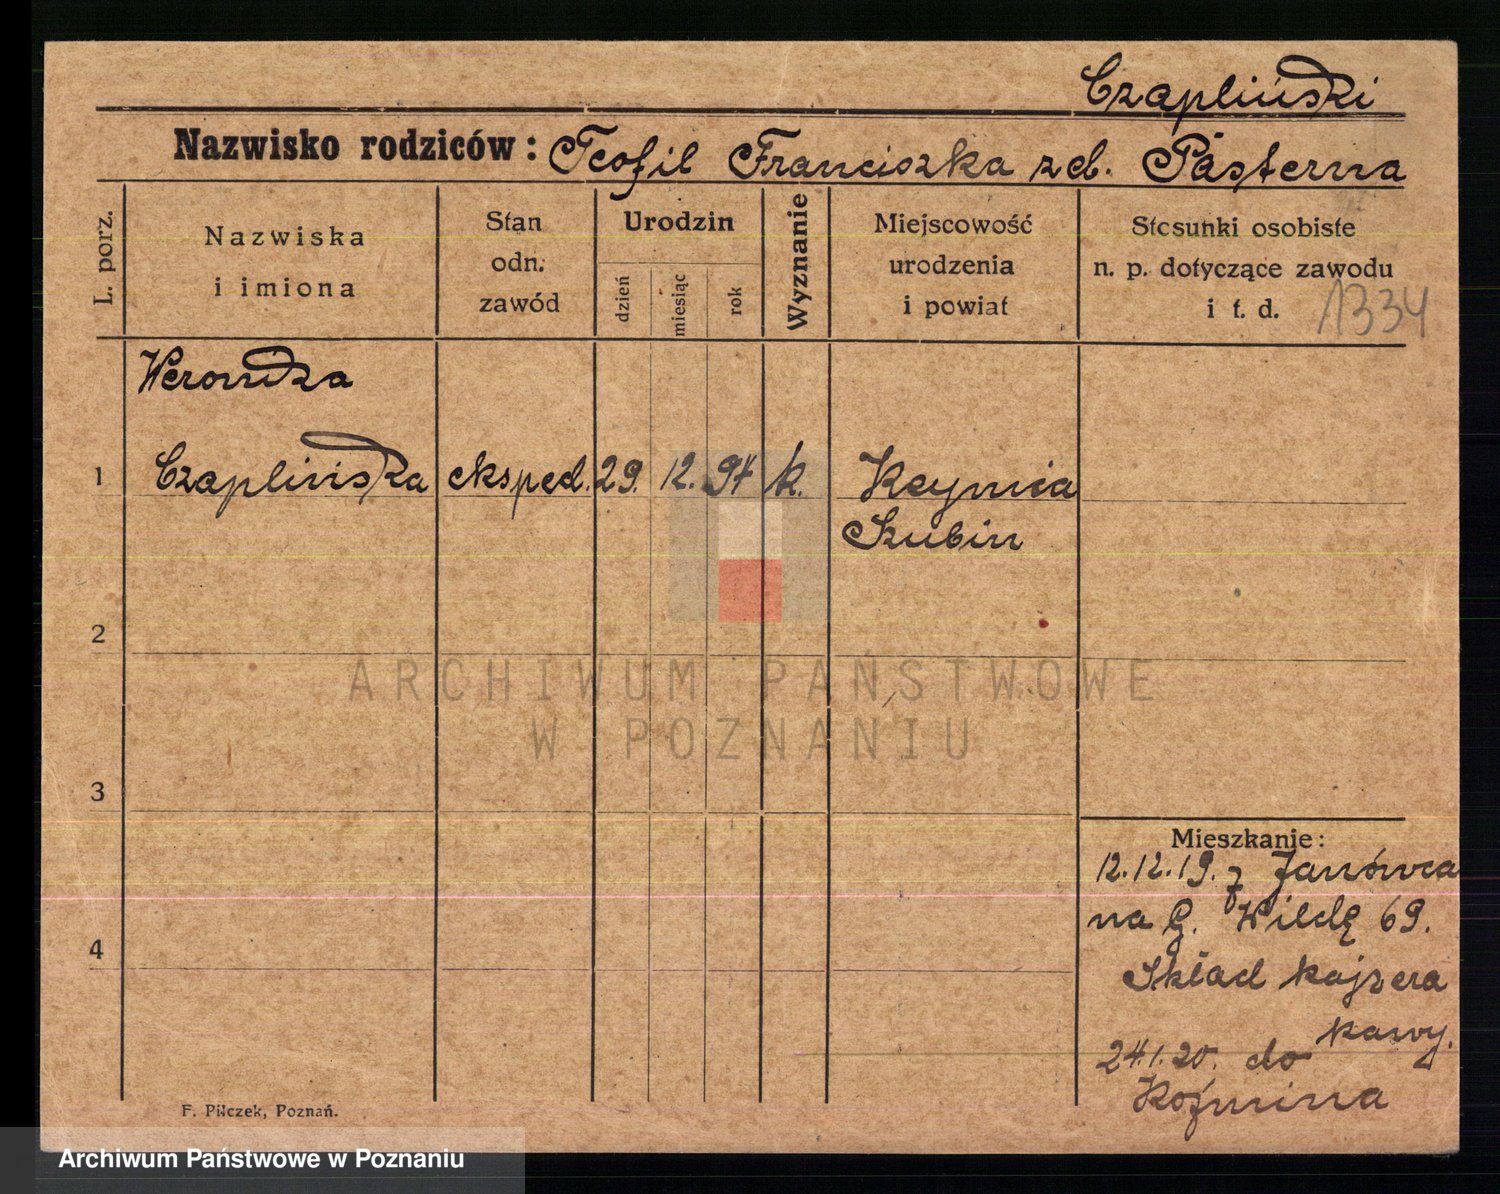 Czapliński
Nazwisko rodziców: Teofil Franciszka zd. Pasterna
L. porz.
Nazwiska
i imiona
Stan
odn.
zawód
Urodzin
dzień
miesiąc
rok
Wyznanie
Miejscowość
urodzenia
i powiat
Stosunki osobiste
n. p. dotyczące zawodu
i t. d.
1334
Weronika
1 Czaplińska eksped. 29. 12. 94 k. Keynia
Szubin
2
3
4
Mieszkanie:
12.12.19. z Janówca
na G. Wildę 69.
Skład kajzera
kawy.
24.1.20. do
Koźmina
F. Pilczek, Poznań.
ARCHIWUM PAŃSTWOWE
W POZNANIU
Archiwum Państwowe w Poznaniu